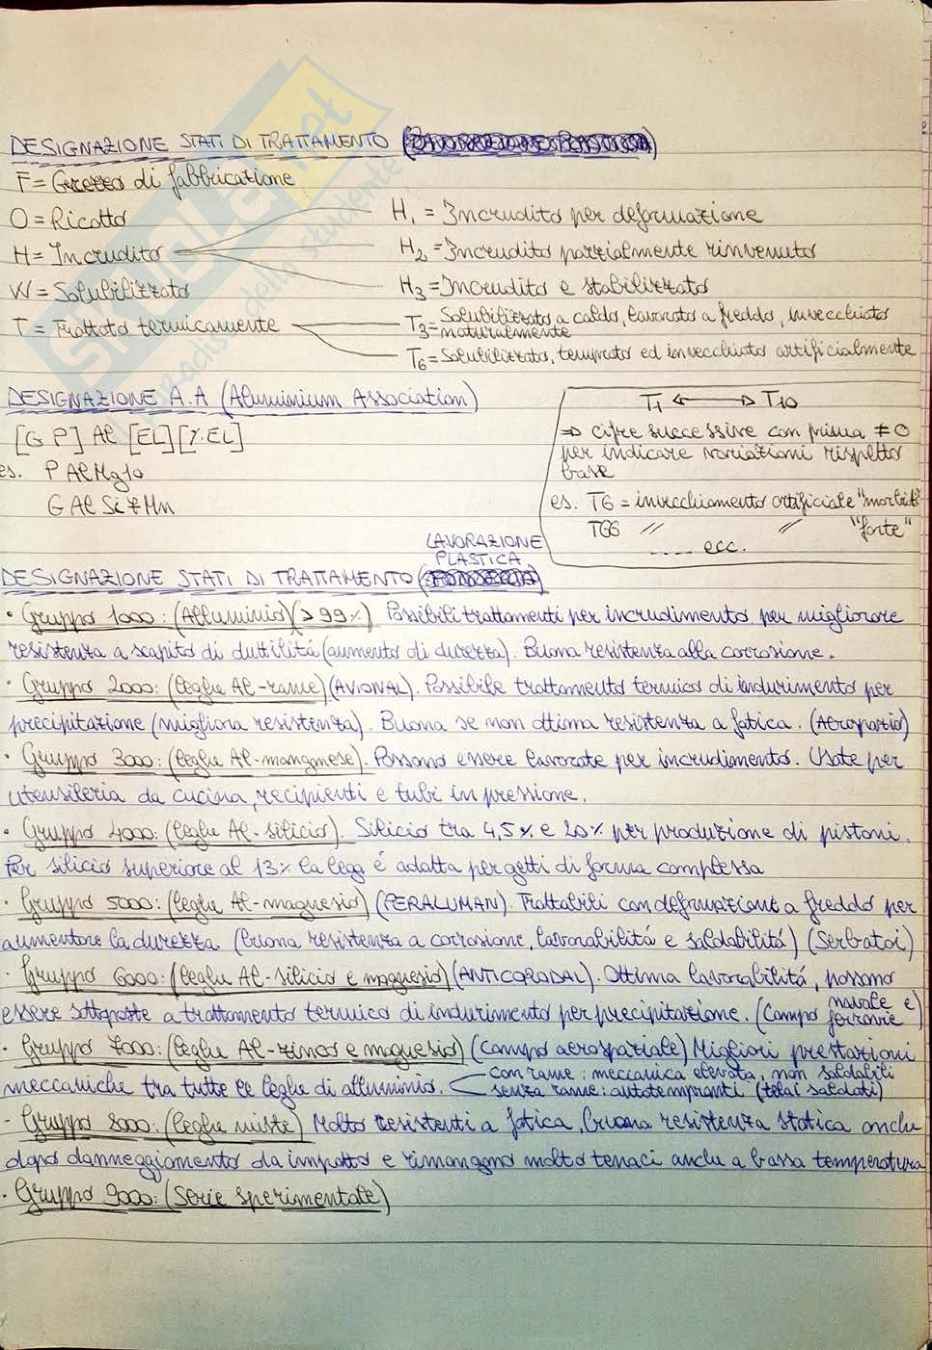 DESIGNAZIONE STATI DI TRATTAMENTO
F = Grezzo di fabbricazione
O = Ricotto
H₁ = Incrudito per deformazione
H = Incrudito
H₂ = Incrudito parzialmente rinvenuto
W = Solubilizzato
H₃ = Incrudito e stabilizzato
T = Trattato termicamente
T₃ = Solubilizzato a caldo, lavorato a freddo, invecchiato
naturalmente
T₆ = Solubilizzato, temprato ed invecchiato artificialmente
DESIGNAZIONE A.A (Aluminium Association)
[G P] Al [EL][%EL]
es. P AlMg10
G AlSi7Mn
T₁ ↔ T₁₀
⇒ cifre successive con prima ≠ 0
per indicare variazioni rispetto
base
es. T6 = invecchiamento artificiale "morbido"
T66 // // "forte"
.... ecc.
LAVORAZIONE
PLASTICA
DESIGNAZIONE STATI DI TRATTAMENTO
• Gruppo 1000: (Alluminio)(>99%) Possibili trattamenti per incrudimento per migliorare
resistenza a scapito di duttilitá (aumento di durezza). Buona resistenza alla corrosione.
• Gruppo 2000: (leghe Al-rame)(AVIONAL). Possibile trattamento termico di indurimento per
precipitazione (migliora resistenza). Buona se non ottima resistenza a fatica. (Aerospazio)
• Gruppo 3000: (leghe Al-manganese). Possono essere lavorate per incrudimento. Usate per
utensileria da cucina, recipienti e tubi in pressione.
• Gruppo 4000: (leghe Al-silicio). Silicio tra 4,5% e 20% per produzione di pistoni.
Per silicio superiore al 13% la lega é adatta per getti di forma complessa
• Gruppo 5000: (leghe Al-magnesio) (PERALUMAN). Trattabili con deformazione a freddo per
aumentare la durezza (buona resistenza a corrosione, lavorabilitá e saldabilitá) (Serbatoi)
• Gruppo 6000: (leghe Al-silicio e magnesio) (ANTICORODAL). Ottima lavorabilitá, possono
essere sottoposte a trattamento termico di indurimento per precipitazione. (Campo navale e ferrovie)
• Gruppo 7000: (leghe Al-zinco e magnesio) (campo aerospaziale) Migliori prestazioni
meccaniche tra tutte le leghe di alluminio.
con rame: meccanica elevata, non saldabili
senza rame: autotempranti (telai saldati)
• Gruppo 8000: (leghe miste) Molto resistenti a fatica, buona resistenza statica anche
dopo danneggiamento da impatto e rimangono molto tenaci anche a bassa temperatura
• Gruppo 9000: (Serie sperimentale)